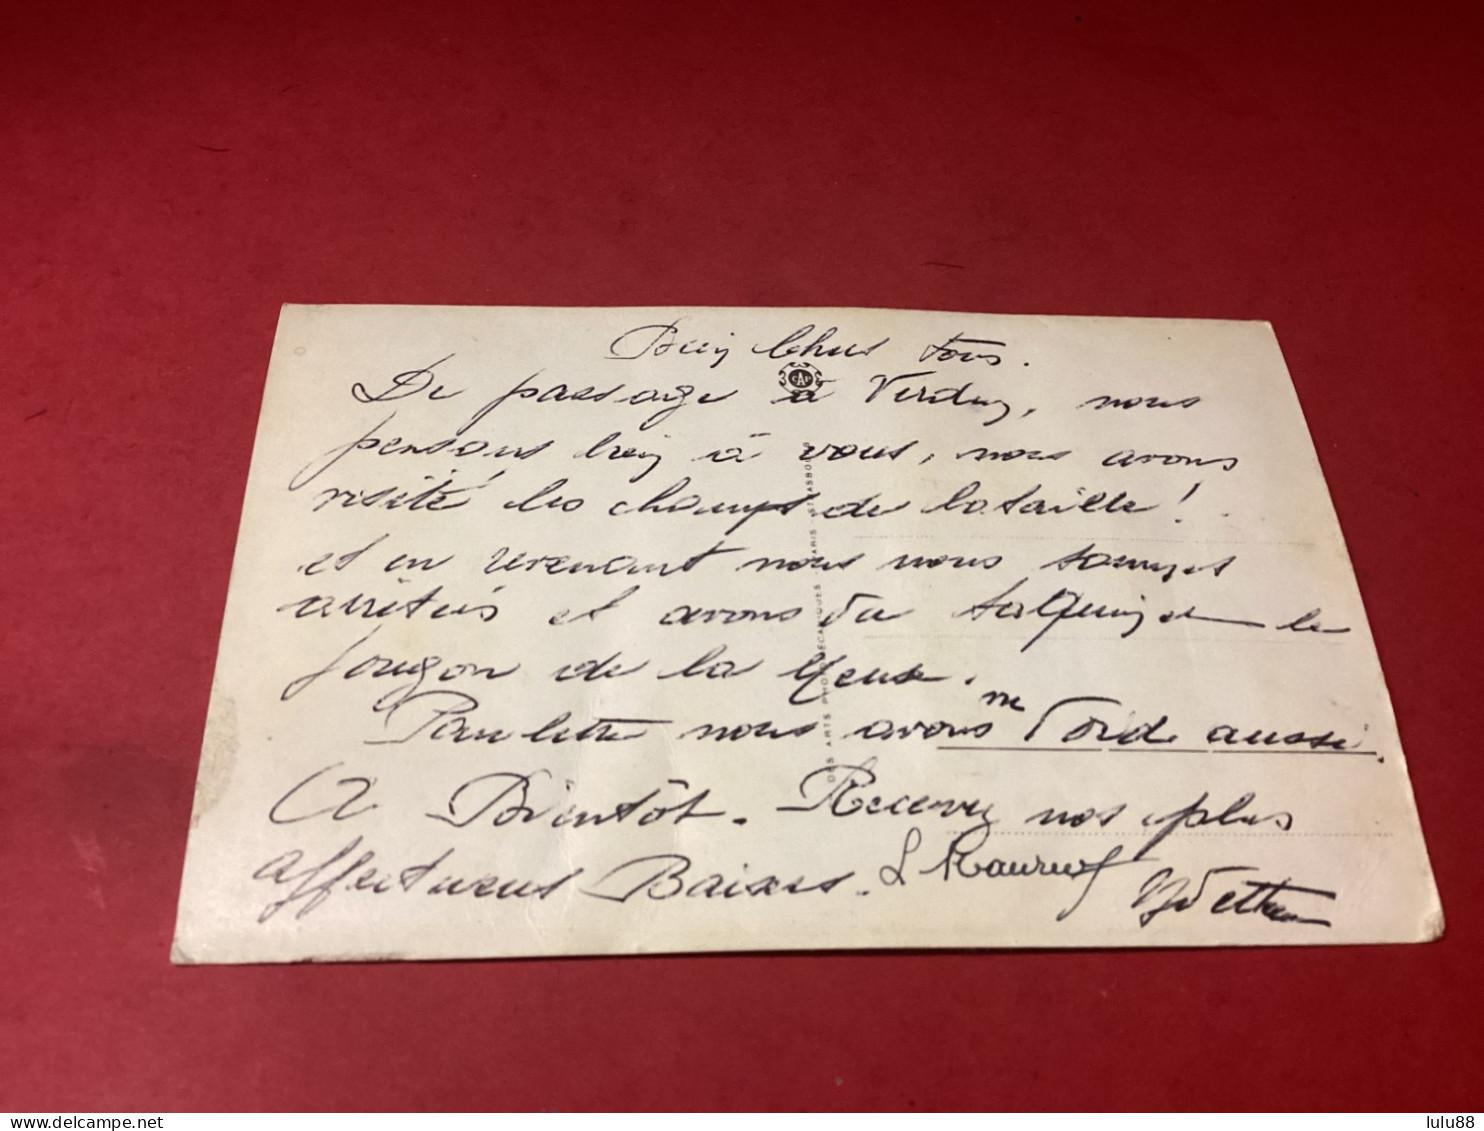 Bien chers tous.
De passage à Verdun, nous
CAP
pensons bien à vous, nous avons
visité les champs de bataille !
et en revenant nous nous sommes
arrêtés et avons vu le
fourgon de la Meuse.
Paulette nous avons vu Void aussi.
A Bientôt. Recevez nos plus
affectueux Baisers.
DES ARTS PHOTOMECANIQUES PARIS - STRASBOURG
delcampe.net
lulu88